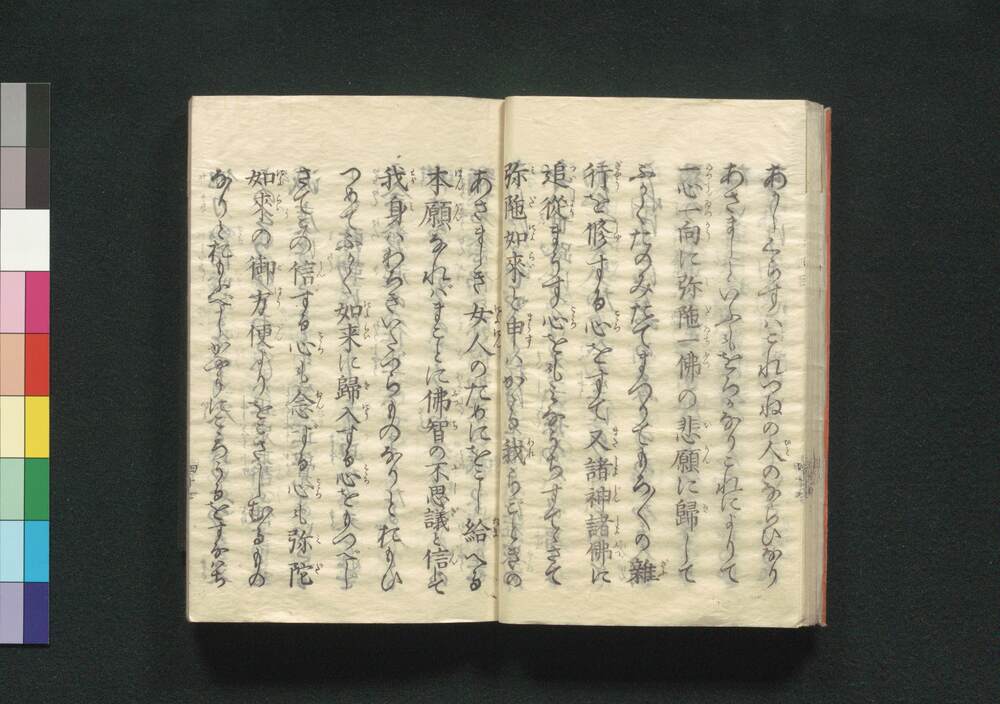 あかしくらすハこれつねの人のならひなり
あさましといふもをろかなりこれによりて
一心一向に弥陁一佛の悲願に歸して
ふかくたのみたてまつりてもろ〱の雜
行を修する心をすて又諸神諸佛に
追從まうす心をもミなうちすてゝさて
弥陁如來と申ハかゝる我らごときの
あさましき女人のためにをこし給へる
本願なれバまことに佛智の不思議と信じて
我身ハわろきいたづらものなりとおもひ
つめてふかく如来に歸入する心をもつべし
さてこの信ずる心も念ずる心も弥陀
如來の御方便よりをこさしむるもの
なりとおもふべしかやうにこゝろうるをすなハち